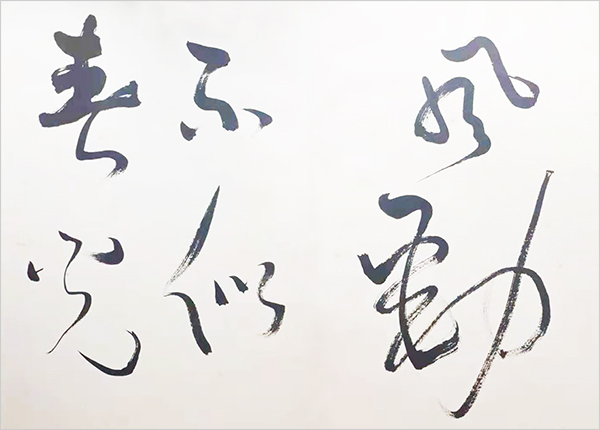 風勁
不似
春光